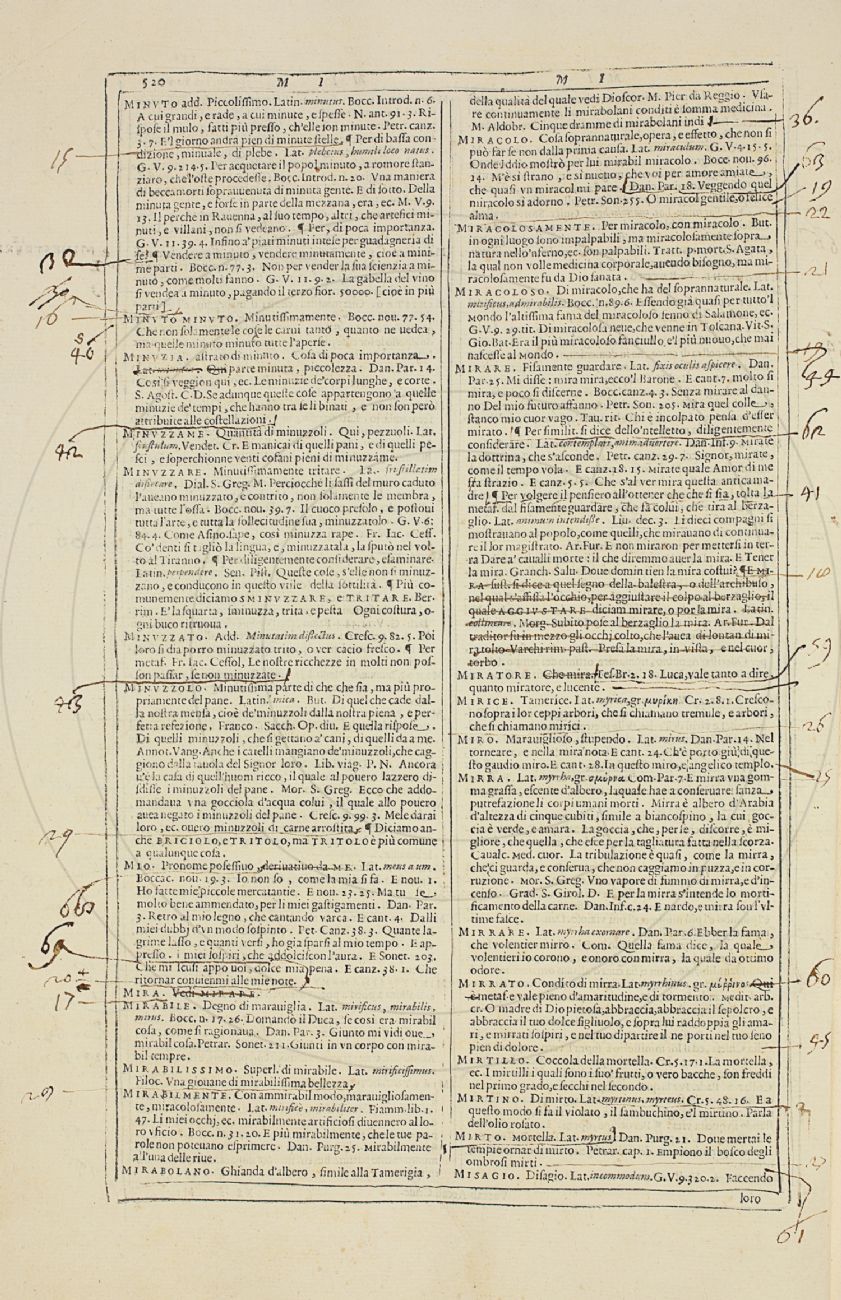 520 M I
MINVTO add. Piccolissimo. Latin. minutus. Bocc. Introd. n. 6.
A cui grandi, e rade, a cui minute, e spesse. N. ant. 91. 3. Ri-
spose il mulo, fatti più presso, ch'elle son minute. Petr. canz.
3. 7. E'l giorno andrà pien di minute stelle. ¶ Per di bassa con-
dizione, minuale, di plebe. Lat. plebeius, humili loco natus.
G. V. 9. 214. 5. Per acquetare il popol minuto, a romore stan-
ziaro, che l'oste procedesse. Bocc. Introd. n. 20. Vna maniera
di beccamorti soprauuenuta di minuta gente. E di sotto. Della
minuta gente, e forse in parte della mezzana, era, ec. M. V. 9.
13. Il perche in Rauenna, al suo tempo, altri, che artefici mi-
nuti, e villani, non si vedeano. ¶ Per, di poca importanza.
G. V. 11. 39. 4. Infino a' piati minuti intese per guadagneria di
se. ¶ Vendere a minuto, vendere minutamente, cioè a mini-
me parti. Bocc. n. 77. 3. Non per vender la sua scienzia a mi-
nuto, come molti fanno. G. V. 11. 9. 2. La gabella del vino
si vendea a minuto, pagando il terzo fior. 50000. [cioè in più
parti]
MINVTO MINVTO. Minutissimamente. Bocc. nou. 77. 54.
Che non solamente le cosele carni tanto, quanto ne uedea,
ma quelle minuto minuto tutte l'aperse.
MINVZIA. astratto di minuto. Cosa di poca importanza.
Qui parte minuta, piccolezza. Dan. Par. 14.
Così si veggion qui, ec. Le minuzie de' corpi lunghe, e corte.
S. Agost. C. D. Se adunque queste cose appartengono a quelle
minuzie de' tempi, che hanno tra se li binati, e non son però
attribuite alle costellazioni.
MINVZZAME. Quantità di minuzzoli. Qui, pezzuoli. Lat.
frustulum. Vendet. Cr. E manicai di quelli pani, e di quelli pe-
sci, e soperchionne venti cofani pieni di minuzzame.
MINVZZARE. Minutissimamente tritare. La. in stillettim
dissecare. Dial. S. Greg. M. Perciocchè li sassi del muro caduto
l'aueano minuzzato, e contrito, non solamente le membra,
ma tutte l'ossa. Bocc. nou. 39. 7. Il cuoco presolo, e postoui
tutta l'arte, e tutta la sollecitudine sua, minuzzatolo. G. V. 6.
84. 4. Come Asino sape, così minuzza rape. Fr. Iac. Cess.
Co' denti si tagliò la lingua, e, minuzzatala, la sputò nel vol-
to al Tiranno. ¶ Per diligentemente considerare, esaminare.
Latin. perpendere. Sen. Pist. Queste cose, s'elle non si minuz-
zano, e conducono in questo vile della sottilità. ¶ Più co-
munemente diciamo SMINVZZARE, e TRITARE. Ber-
rim. E' la squarta, sminuzza, trita, e pesta Ogni costura, o-
gni buco ritruoua.
MINVZZATO. Add. Minutatim dissectus. Cresc. 9. 82. 5. Poi
loro si dia porro minuzzato trito, o ver cacio fresco. ¶ Per
metaf. Fr. Iac. Cessol. Le nostre ricchezze in molti non pos-
son passar, se non minuzzate.
MINVZZOLO. Minutissima parte di che che sia, ma più pro-
priamente del pane. Latin. mica. But. Di quel che cade dal-
la nostra mensa, cioè de' minuzzoli dalla nostra piena, e per-
fetta refezione. Franco. Sacch. Op. diu. E quella rispose.
Di quelli minuzzoli, che si gettano a' cani, di quelli da a me.
Annot. Vang. Anche i catelli mangiano de' minuzzoli, che cag-
giono dalla tauola del Signor loro. Lib. viag. P. N. Ancora
u'è la casa di quell'huom ricco, il quale al pouero lazzero di-
sdisse i minuzzoli del pane. Mor. S. Greg. Ecco che addo-
mandaua vna gocciola d'acqua colui, il quale allo pouero
auea negato i minuzzoli del pane. Cresc. 9. 99. 3. Mele darai
loro, ec. ouero minuzzoli di carne arrostita. ¶ Diciamo an-
che BRICIOLO, e TRITOLO, ma TRITOLO è più comune
a qualunque cosa.
MIO. Pronome possessiuo, deriuatiuo da ME. Lat. meus a um.
Boccac. nou. 19. 3. Io non so, come la mia si fa. E nou. 1.
Ho fatte mie piccole mercatantie. E nou. 23. 25. Ma tu se
molto bene ammendato, per li miei gastigamenti. Dan. Par.
3. Retro al mio legno, che cantando varca. E cant. 4. Dalli
miei dubbj d'vn modo sospinto. Pet. Canz. 38. 3. Quante la-
grime lasso, e quanti versi, ho già sparsi al mio tempo. E ap-
presso. i miei sospiri, che addolcisson l'aura. E Sonet. 203.
Che mi scusi appo uoi, dolce mia pena. E canz. 38. 1. Che
ritornar conuienmi alle mie note.
MIRA. Vedi MIRARE.
MIRABILE. Degno di marauiglia. Lat. mirificus, mirabilis,
mirus. Bocc. n. 17. 26. Domando il Duca, se così era mirabil
cosa, come si ragionaua. Dan. Par. 3. Giunto mi vidi oue
mirabil cosa. Petrar. Sonet. 211. Giunti in vn corpo con mira-
bil tempre.
MIRABILISSIMO. Superl. di mirabile. Lat. mirificissimus.
Filoc. Vna giouane di mirabilissima bellezza.
MIRABILMENTE. Con ammirabil modo, marauigliosamen-
te, miracolosamente. Lat. mirificè, mirabiliter. Fiamm. lib. 1.
47. Li miei occhj, ec. mirabilmente artificiosi diuennero al lo-
ro vficio. Bocc. n. 31. 20. E più mirabilmente, che le tue pa-
role non poteuano esprimere. Dan. Purg. 25. Mirabilmente
a l'una delle riue.
MIRABOLANO. Ghianda d'albero, simile alla Tamerigia,
15
32
39
16
S
40
42
43
29
66
69
20
17
29
M I
della qualità del quale vedi Dioscor. M. Pier da Reggio. Vsa-
re continuamente li mirabolani conditi è somma medicina.
M. Aldobr. Cinque dramme di mirabelani indi
MIRACOLO. Cosa soprannaturale, opera, e effetto, che non si
può far se non dalla prima causa. Lat. miraculum. G. V. 4. 15. 5.
Onde Iddio mostrò per lui mirabil miracolo. Bocc. nou. 96.
14. M'è si strano, e si nuouo, che voi per amore amiate,
che quasi vn miracol mi pare. Dan. Par. 18. Veggendo quel
miracolo si adorno. Petr. Son. 255. O miracol gentile, o felice
alma.
MIRACOLOSAMENTE. Per miracolo, con miracolo. But.
in ogni luogo sono impalpabili, ma miracolosamente sopra
natura nello 'nferno, ec. son palpabili. Tratt. p. mort. S. Agata,
la qual non volle medicina corporale, auendo bisogno, ma mi-
racolosamente fu da Dio sanata.
MIRACOLOSO. Di miracolo, che ha del soprannaturale. Lat.
mirificus, admirabilis. Bocc. n. 89. 6. Essendo già quasi per tutto 'l
Mondo l'altissima fama del miracoloso senno di Salamone, ec.
G. V. 9. 29. tit. Di miracolosa neue, che venne in Toscana. Vit. S.
Gio. Bat. Era il più miracoloso fanciullo, e 'l più nuouo, che mai
nascesse al Mondo.
MIRARE. Fisamente guardare. Lat. fixis oculis aspicere. Dan.
Par. 25. Mi disse: mira mira, ecco 'l Barone. E cant. 7. molto si
mira, e poco si discerne. Bocc. canz. 4. 3. Senza mirare al dan-
no Del mio futuro affanno. Petr. Son. 205. Mira quel colle,
stanco mio cuor vago. Tau. rit. Chi è incolpato pensa d'esser
mirato. ¶ Per similit. si dice dello 'ntelletto, diligentemente
considerare. Lat. contemplari, animaduertere. Dan. Inf. 9. Mirate
la dottrina, che s'asconde. Petr. canz. 29. 7. Signor, mirate,
come il tempo vola. E canz. 18. 15. Mirate quale Amor di me
fa strazio. E canz. 5. 5. Che s'al ver mira questa antica ma-
dre. ¶ Per volgere il pensiero all'ottener che che si sia, tolta la
metaf. dal fisamente guardare, che fa colui, che tira al berza-
glio. Lat. animum intendisse. Liu. dec. 3. Li dieci compagni si
mostrauano al popolo, come quelli, che mirauano di continua-
re il lor magistrato. Ar. Fur. E non miraron per mettersi in ter-
ra Dare a' caualli morte: il che diremmo auer la mira. E Tener
la mira. Granch. Salu. Doue domin tien la mira costui? ¶ E MI-
RA sust. si dice a quel segno della balestra, o dell'archibuso,
nel qual s'affissa l'occhio, per aggiustare il colpo al berzaglio, il
quale AGGIVSTARE diciam mirare, o por la mira. Latin.
collimare. Morg. Subito pose al berzaglio la mira. Ar. Fur. Dal
traditor fu in mezzo gli occhj colto, che l'auea di lontan di mi-
ra tolto. Varchi rim. past. Presa la mira, in vista, e nel cuor,
torbo.
MIRATORE. Che mira. Tes. Br. 2. 18. Luca, vale tanto a dire,
quanto miratore, e lucente.
MIRICE. Tamerice. Lat. myrica, gr. μυρίκη. Cr. 2. 8. 1. Cresco-
no sopra i lor ceppi arbori, che si chiamano tremule, e arbori,
che si chiamano mirici.
MIRO. Marauiglioso, stupendo. Lat. mirus. Dan. Par. 14. Nel
torneare, e nella mira nota. E cant. 24. Ch'è porto giù, di que-
sto gaudio miro. E cant. 28. In questo miro, e angelico templo.
MIRRA. Lat. myrrha, gr. σμύρνα. Com. Par. 7. E mirra vna gom-
ma grassa, escente d'albero, la quale hae a conseruare sanza
putrefazione li corpi umani morti. Mirra è albero d'Arabia
d'altezza di cinque cubiti, simile a biancospino, la cui goc-
cia è verde, e amara. La goccia, che, per se, discorre, è mi-
gliore, che quella, che esce per la tagliatura fatta nella scorza.
Caualc. Med. cuor. La tribulazione è quasi, come la mirra,
che ci guarda, e conserua, che non caggiamo in puzza, e in cor-
ruzione. Mor. S. Greg. Vno vapore di fummo di mirra, e d'in-
censo. Grad. S. Girol. D. E per la mirra s'intende lo morti-
ficamento della carne. Dan. Inf. c. 24. E nardo, e mirra son l'vl-
time fasce.
MIRRARE. Lat. myrrha exornare. Dan. Par. 6. Ebber la fama,
che volentier mirro. Com. Quella fama dice, la quale
volentieri io corono, e onorò con mirra, la quale da ottimo
odore.
MIRRATO. Condito di mirra. Lat. myrrhinus. gr. μύρρινος. Qui
è metaf. e vale pieno d'amaritudine, e di tormento. Medit. arb.
cr. O madre di Dio pietosa, abbraccia, abbraccia il sepolcro, e
abbraccia il tuo dolce figliuolo, e sopra lui raddoppia gli ama-
ri, e mirrati sospiri, e nel tuo dipartire il ne porti nel tuo seno
pien di dolore.
MIRTILLO. Coccola della mortella. Cr. 5. 17. 1. La mortella,
ec. I mirtilli i quali sono i suo' frutti, o vero bacche, son freddi
nel primo grado, e secchi nel secondo.
MIRTINO. Di mirto. Lat. myrtinus, myrteus. Cr. 5. 48. 16. E a
questo modo si fa il violato, il sambuchino, e 'l mirtino. Parla
dell'olio rosato.
MIRTO. Mortella. Lat. myrtus. Dan. Purg. 21. Doue mertai le
tempie ornar di mirto. Petrar. cap. 1. Empiono il bosco degli
ombrosi mirti.
MISAGIO. Disagio. Lat. incommodum. G. V. 9. 320. 2. Faccendo
loro
36.
63
19
22
21
44
62
41
18
59
26
25
60
45
27
61